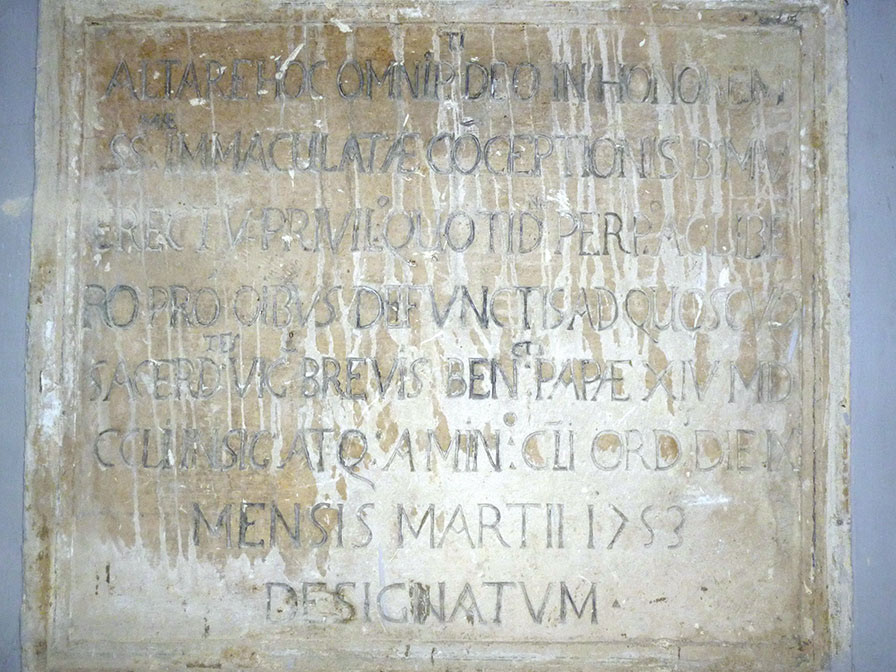 ALTARE HOC OMNIP.TI DEO IN HONOREM
SS.MAE IMMACULATÆ CŌCEPTIONIS B. M. V
ERECTV. PRIVIL.O QUOTID.N PERP.O AC LIBE
RO PRO OIBVS DEFVNCTIS AD QUOSCVQ
SACERD.TES VIG. BREVIS BEN.CTI PAPÆ XIV MD
CCLI INSIG. ATQ. A MIN.O GLI ORD. DIE IX
MENSIS MARTII 1753
DESIGNATVM